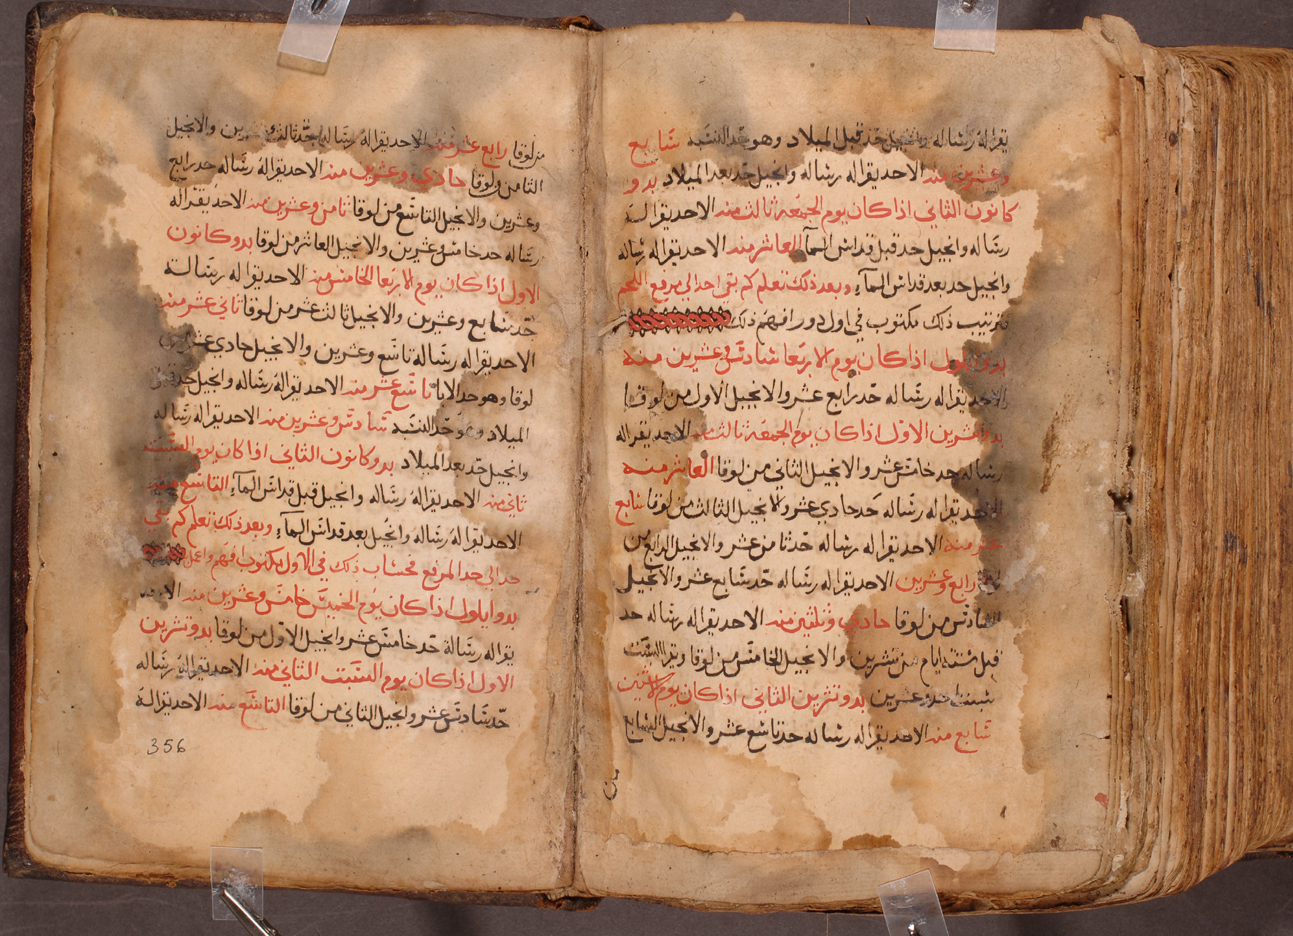 يقرا له رساله وانجيل حد قبل الميلاد وهو حد النسبه سابع
وعشرين منه الاحد يقرا له رساله وانجيل حد بعد الميلاد بدو
كانون الثاني اذا كان يوم الجمعه ثالث منه الاحد يقرا له
رساله وانجيل حد قبل قداس المآ العاشر منه الاحد يقرا له رساله
وانجيل حد بعد قداس المآء وبعد ذلك تعلم كم بقى احد الى مرفع اللحم
فترتيب ذلك مكتوب في اول دور افهم ذلك
بدو ايلول اذا كان يوم الاربعا سادس وعشرين منه
الاحد يقرا له رساله حد رابع عشر والانجيل الاول من لوقا
بدو تشرين الاول اذا كان يوم الجمعه ثالث منه الاحد يقرا له
رساله حد خامس عشر والانجيل الثاني من لوقا العاشر منه
الاحد يقرا له رساله حد حادي عشر والانجيل الثالث من لوقا سابع
عشر منه الاحد يقرا له رساله حد ثامن عشر والانجيل الرابع من
رابع وعشرين الاحد يقرا له رساله حد سابع عشر والانجيل
السادس من لوقا حادي وثلثين منه الاحد يقرا له رساله حد
قبل ستة ايام من تشرين والانجيل الخامس من لوقا
حد وعشرين بدو تشرين الثاني اذا كان يوم الاثنين
سابع منه الاحد يقرا له رساله حد تاسع عشر والانجيل السابع
من لوقا رابع عشر منه الاحد يقرا له رساله حد ثالث وعشرين والانجيل
الثامن من لوقا حادي وعشرين منه الاحد يقرا له رساله حد رابع
وعشرين والانجيل التاسع من لوقا ثامن وعشرين منه الاحد يقرا له
رساله حد خامس وعشرين والانجيل العاشر من لوقا بدو كانون
الاول اذا كان يوم الاربعا الخامس منه الاحد يقرا له رساله
حد سابع وعشرين والانجيل ثالث عشر من لوقا ثاني عشر منه
الاحد يقرا له رساله تاسع وعشرين والانجيل حادي عشر من
لوقا وهو حد الابا تاسع عشر منه الاحد يقرا له رساله وانجيل حد قبل
الميلاد وهو حد النسبه سادس وعشرين منه الاحد يقرا له رساله
وانجيل حد بعد الميلاد بدو كانون الثاني اذا كان يوم السبت
ثاني منه الاحد يقرا له رساله وانجيل قبل قداس المآء التاسع منه
الاحد يقرا له رساله وانجيل بعد قداس المآء وبعد ذلك تعلم كم بقى
حد الى حد المرفع فحساب ذلك في الاول مكتوب افهم واعمل
بدو ايلول اذا كان يوم الخميس خامس وعشرين منه الاحد
يقرا له رسالة حد خامس عشر وانجيل الاول من لوقا بدو تشرين
الاول اذا كان يوم السبت الثاني منه الاحد يقرا له رساله
حد سادس عشر وانجيل الثاني من لوقا التاسع منه الاحد يقرا له
356